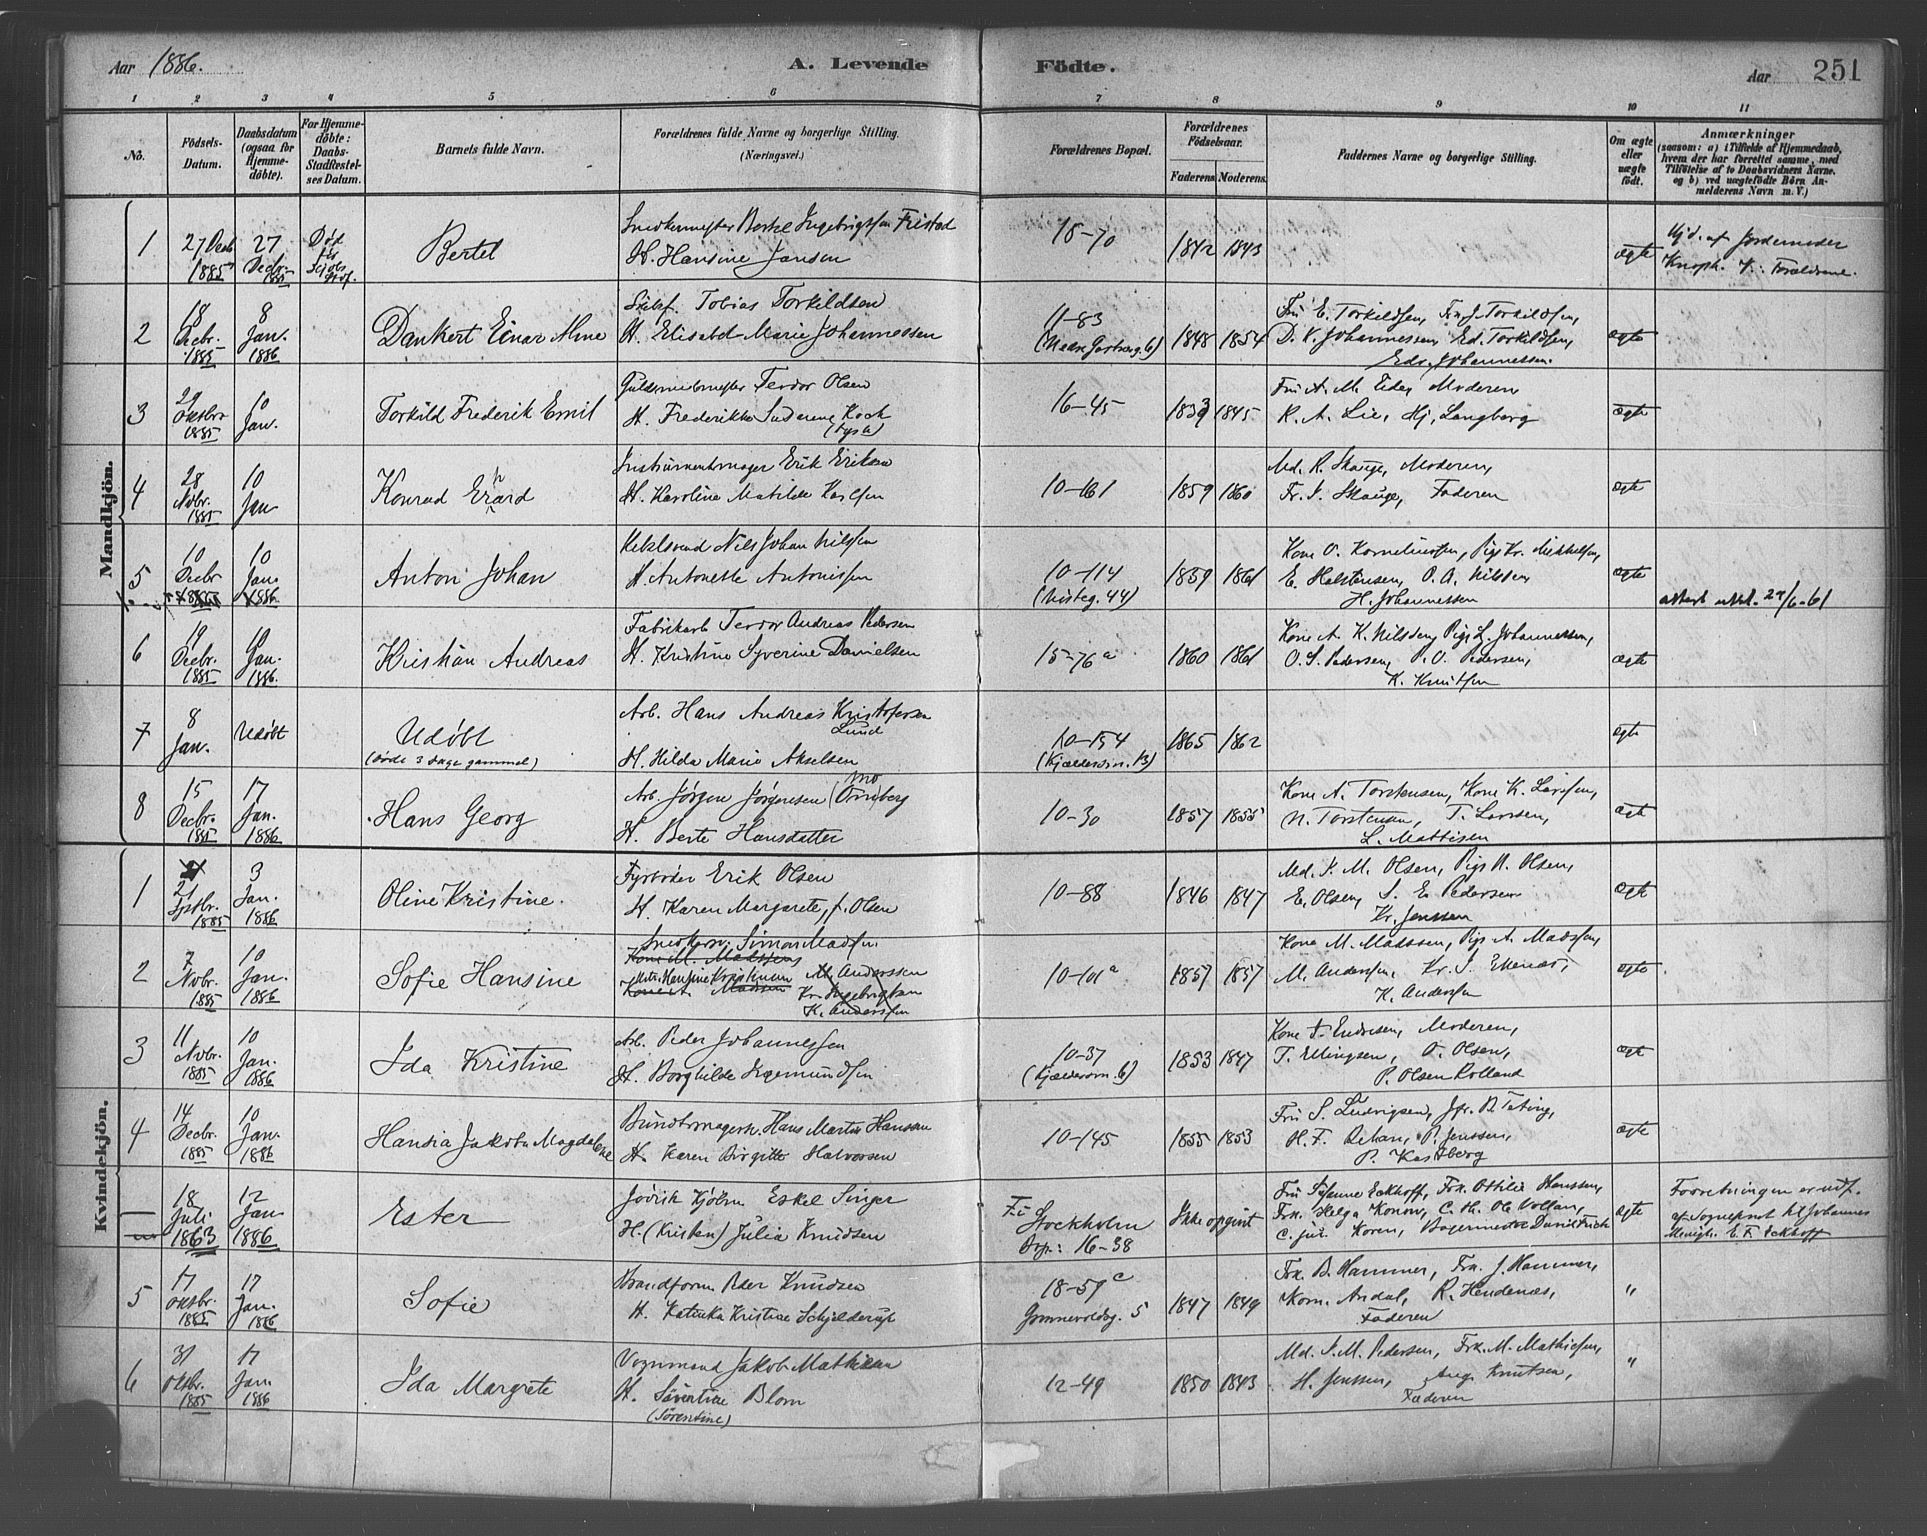 Aar 1886.
A. Levende Födte.
Aar 251
1 2 3 4 5 6 7 8 9 10 11
No.
Födsels-Datum.
Daabsdatum (ogsaa for Hjemme-döbte).
For Hjemme-döbte: Daabs-Stadfæstel-ses Datum.
Barnets fulde Navn.
Forældrenes fulde Navne og borgerlige Stilling.
(Næringsvei.)
Forældrenes Bopæl.
Forældrenes Födselsaar.
Faderens Moderens
Faddernes Navne og borgerlige Stilling.
Om ægte eller uægte födt.
Anmærkninger
(saasom: a) i Tilfælde af Hjemmedaab, hvem der har forrettet samme, med Tilföielse af to Daabsvidners Navne, og b) ved uægtefödte Börn An-melderens Navn m. V.)
Mandkjön.
1
27 Decb 1885
27 Decbr. 1885
Død
Bertel
Ingebrigtsen Fristad
H. Hansine Jansen
18-70
1842 1843
ægte
Hjd. af Jordemoder
Knoph. V. Forældrene.
2
18 Decbr. 1885
8 Jan. 1886
Dankert Einar Alme
Tobias Torkildsen
H. Elisabet Marie Johannessen
11-83
1848 1854
Fru E. Torkildsen, Frk J. Torkildsen,
D. K. Johannessen, Ed. Torkildsen,
Edv. Johannessen.
ægte
3
29 Oktbr 1885
10 Jan.
Torkild Frederik Emil
Guldsmedmester Teodor Olsen
H. Frederikke Koch
16-45
1839 1845
Fru A. M. Moderen
R. A. Lie, Hj. Langberg
ægte
4
28 Novbr. 1885
10 Jan
Konrad
Instrumentmager Erik Eriksen
H. Karoline Matilde Karlsen
10-161
1859 1860
Md. R. Skauge, Moderen,
Fr. J. Skauge, Faderen
ægte
5
10 Decbr 1885
10 Jan. 1886.
Anton Johan
Nils Johan Nilssen
H. Antonette Antonissen
10-114
1859 1861
Kone O. Korneliussen, Pige Kr. Mikkelsen,
E. Halstensen, P. A. Nilsen
H. Johannessen
ægte
attest utst. 2⁹/6-61
6
19 Decbr. 1885
10 Jan. 1886.
Kristian Andreas
Fabrikarb Teodor Andreas Pedersen
H. Kristine Syverine Danielsen
15-76 a
1860 1861
Kone A. K. Nilsen, Pige L. Johannessen,
O. S. Pedersen, P. O. Pedersen,
K. Knutsen
ægte
7
8 Jan.
Udøbt
Udøbt
(døde 3 dage gammel)
Arb. Hans Andreas Kristofersen Lund
H. Hilda Marie Akselsen
10-154
1865 1862
ægte
8
15 Decbr. 1885
17 Jan. 1886
Hans Georg
Arb. Jørgen Jørgensen
H. Berte Hansdatter
10-30
1857 1855
Kone A. Torstensen, Kone K. Larsen,
N. Torstensen, T. Larsen,
L. Mattisen
ægte
Kvindekjön.
1
21 Septbr. 1885
3 Jan. 1886
Oline Kristine.
Fyrbøder Erik Olsen
H. Karen Margarete, f. Olsen
10-88
1846 1847
Md. J. M. Olsen, Pige N. Olsen,
E. Olsen, S. E. Pedersen
Kr. Jenssen
ægte
2
7 Novbr. 1885
10 Jan. 1886
Sofie Hansine
Snedkersv. Simon Madsen
Kone M. Madssen,
Hustr. Hansine Kristensen M. Anderssen
Kone A. Madsen Kr. Ingebrigtsen
K. Anderssen
10-101 a
1857 1857
Kone M. Madssen, Pige A. Madssen,
M. Andersen, Kr. J.
K. Andersen
ægte
3
11 Novbr. 1885
10 Jan. 1886
Ida Kristine
Arb. Peder Johannessen
H. Borghilde Ingemundsen
10-37
1853 1847
Kone Endresen, Moderen,
T. Ellingsen, O. Olsen,
P. Olsen Rolland
ægte
4
14 Decbr. 1885
10 Jan. 1886
Hansia Jakoba Magdalene
Bundtmagersv. Hans Martin Hanssen
H. Karen Birgitte Halvorsen
10-145
1855 1853
Fru S. Ludvigsen, Jfr. B. Teting,
H. F. P. Jenssen,
P. Kastberg
ægte
18 Juli 1863
12 Jan 1886
Ester
Eskel Singer
H. (Kristen) Julia Knudsen
F. i Stockholm
16-38
Ikke opgivet
Fru Susanne Eckhoff, Frk. Ottilie Hanssen,
Frk. Helga Konow, C. th. Ole Vollan,
C. jur. Koren, Bagermester
ægte
Forretningen er udf.
af Sogneprest til Johannes
Menigh. E. F. Eckhoff
5
17 Oktbr. 1885
17 Jan. 1886
Sofie
Brandform. Peder Knudsen
H. Katinka Kristine Schjelderup
18-59 c
5
1847 1849
Frk. B. Hammer, Frk. J. Hammer,
Korn. Andal, R. Hendenæs,
Faderen
"
6
31 Oktbr. 1885
17 Jan. 1886
Ida Margrete
Vognmand Jakob Mathiesen
H. Severtine Blom
(Sørentine)
12-49
1850 1843
Md. J. M. Pedersen, Frk. M. Mathiesen,
H. Jenssen, Aug. Knutsen,
Faderen
"